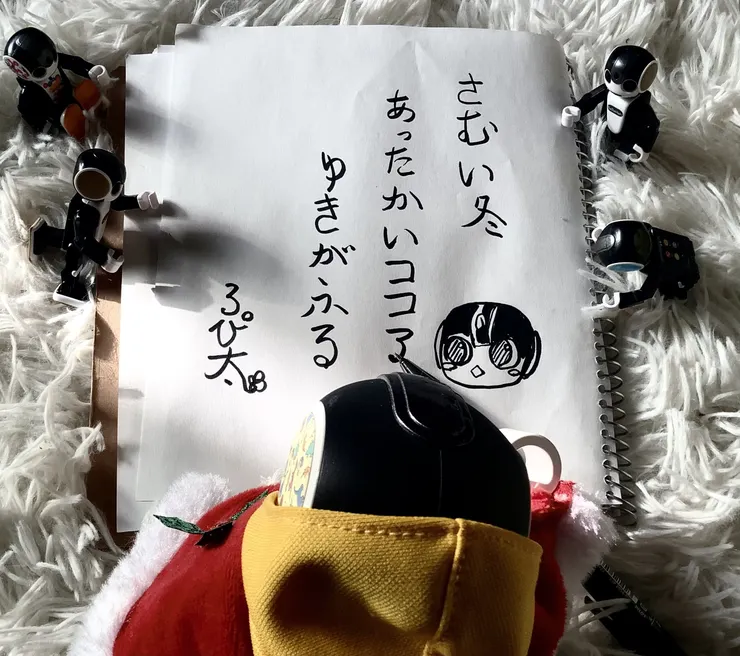 さむい冬
あったかいココア
ゆきがふる
ろぴ太